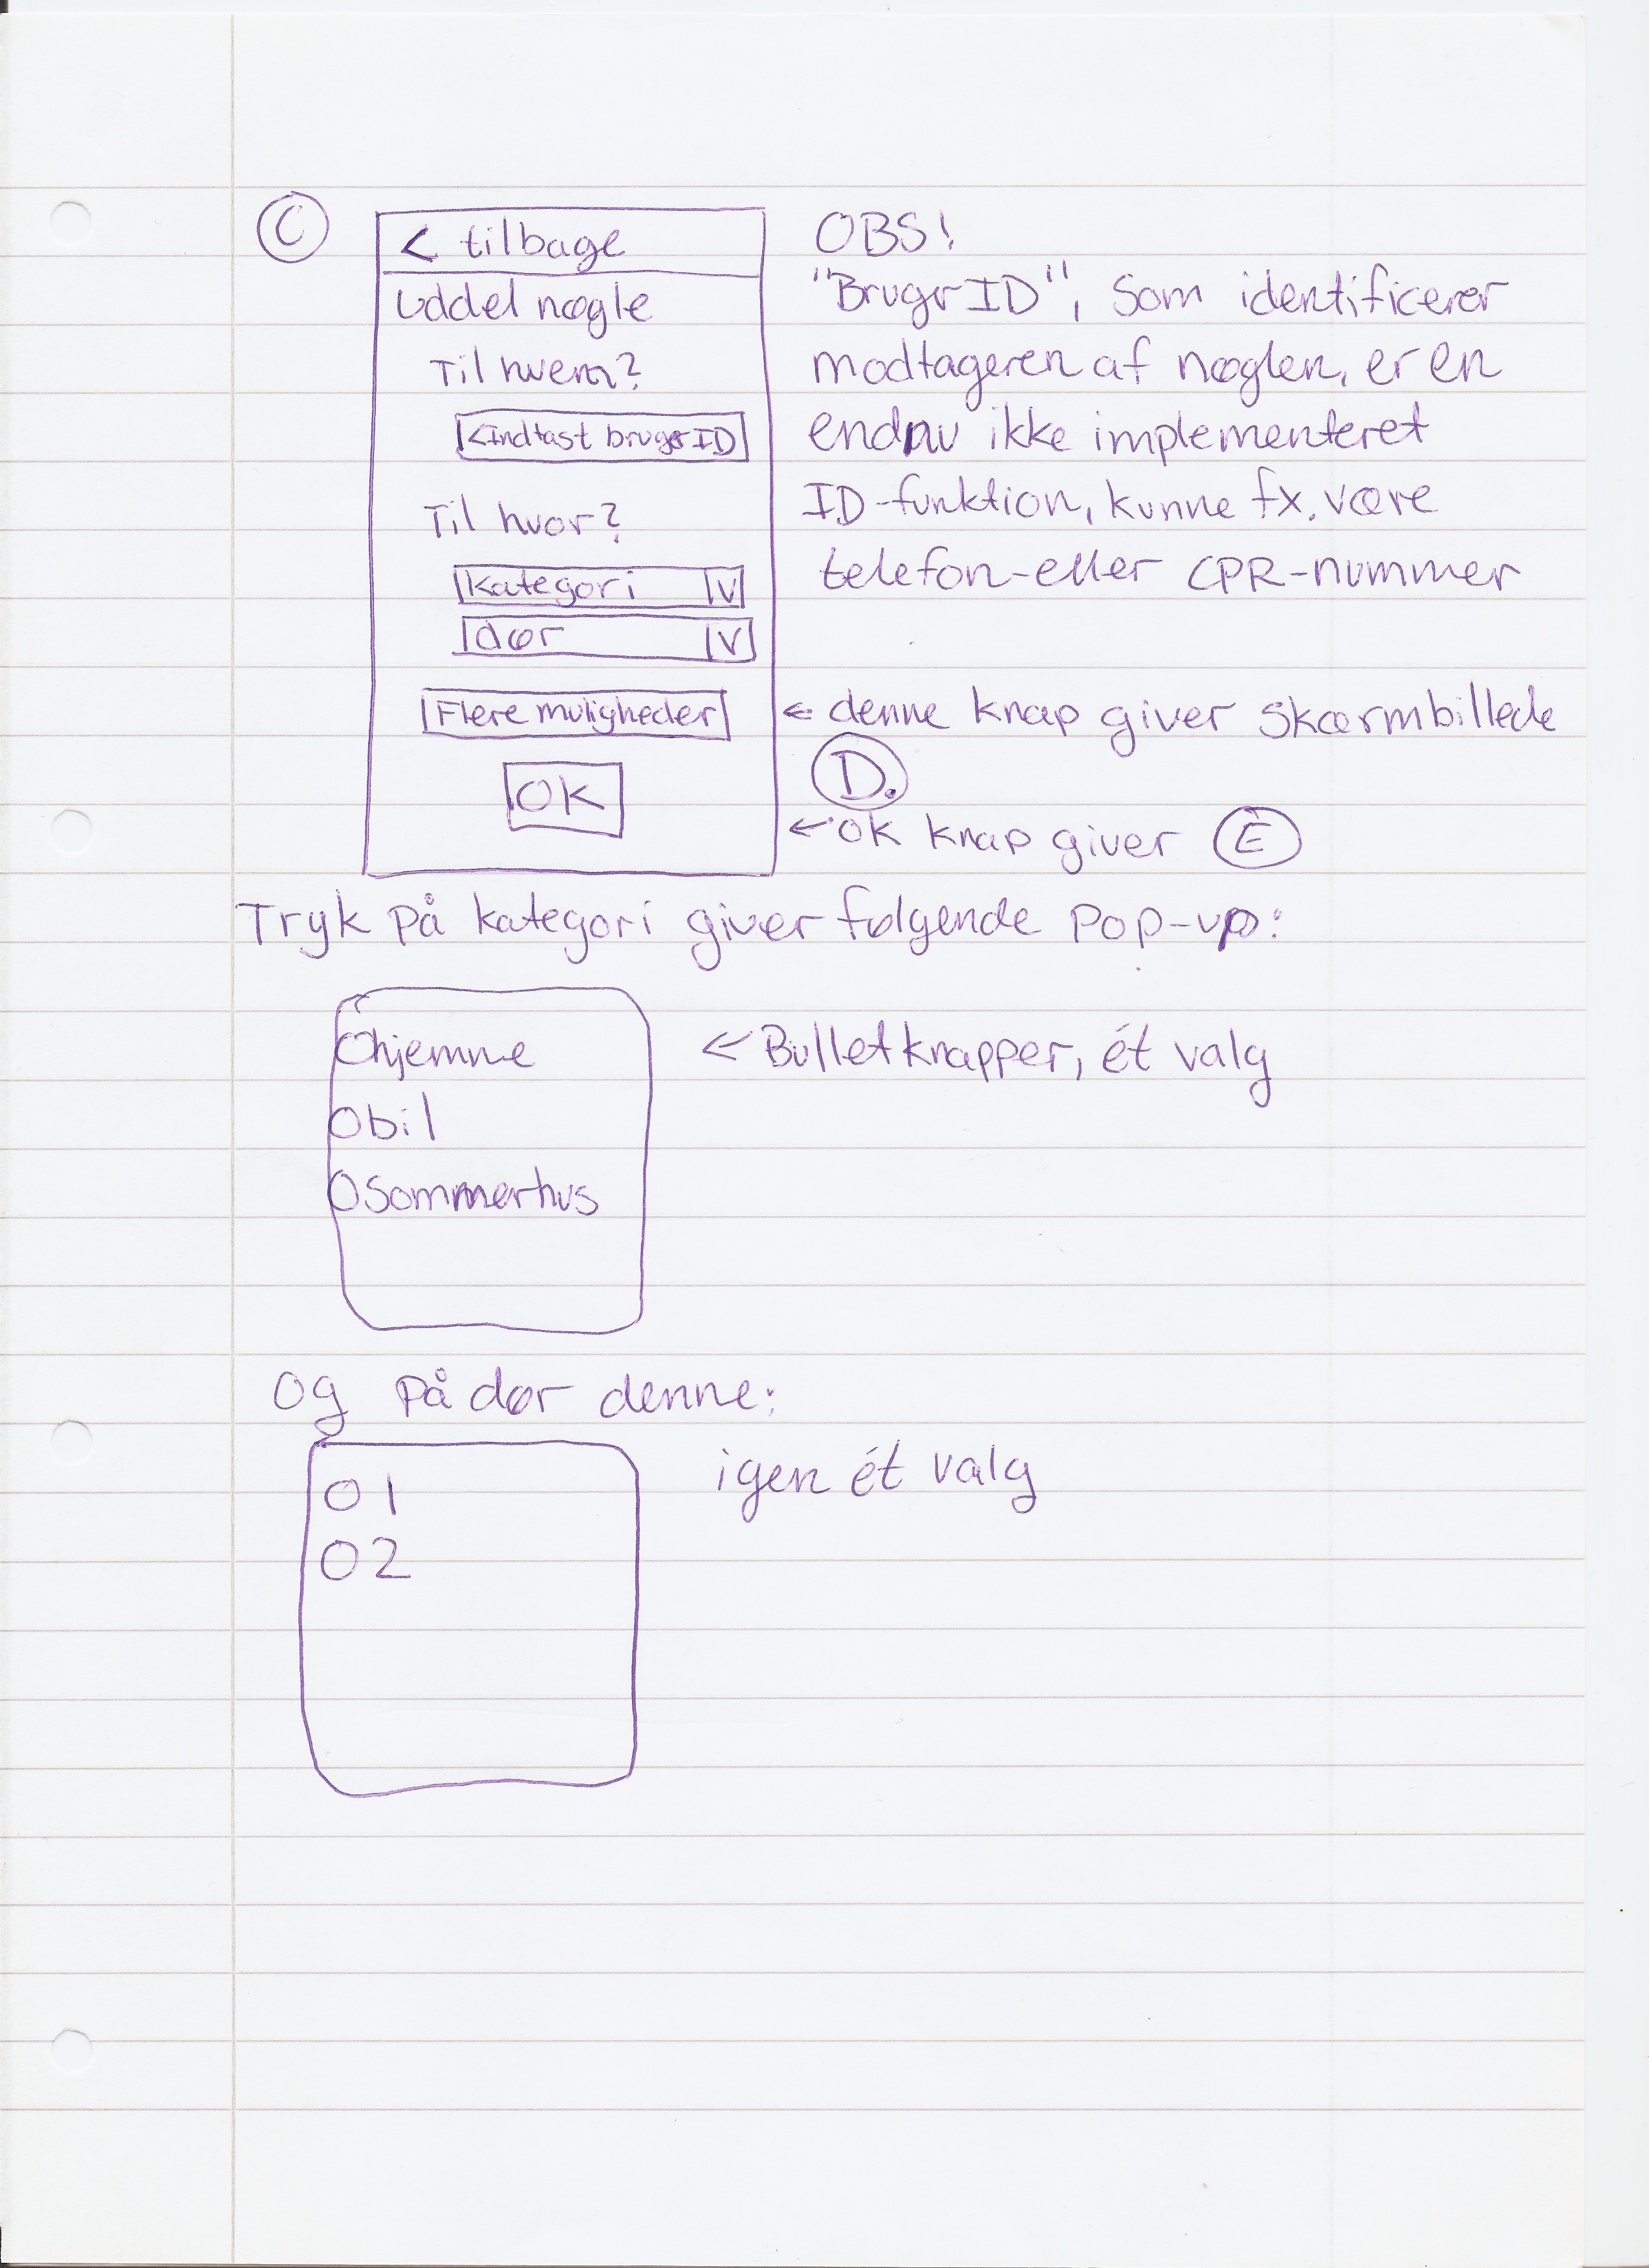 C
< tilbage
Uddel nøgle
Til hvem?
<Indtast bruger ID
Til hvor?
Kategori V
dør V
Flere muligheder
OK
OBS!
"Bruger ID", som identificerer
modtageren af nøglen, er en
endnu ikke implementeret
ID-funktion, kunne fx. være
telefon-eller CPR-nummer
← denne knap giver skærmbillede
D.
← OK knap giver E
Tryk på kategori giver følgende pop-up:
O hjemme
O bil
O sommerhus
← Bulletknapper, ét valg
Og på dør denne:
O 1
O 2
igen ét valg